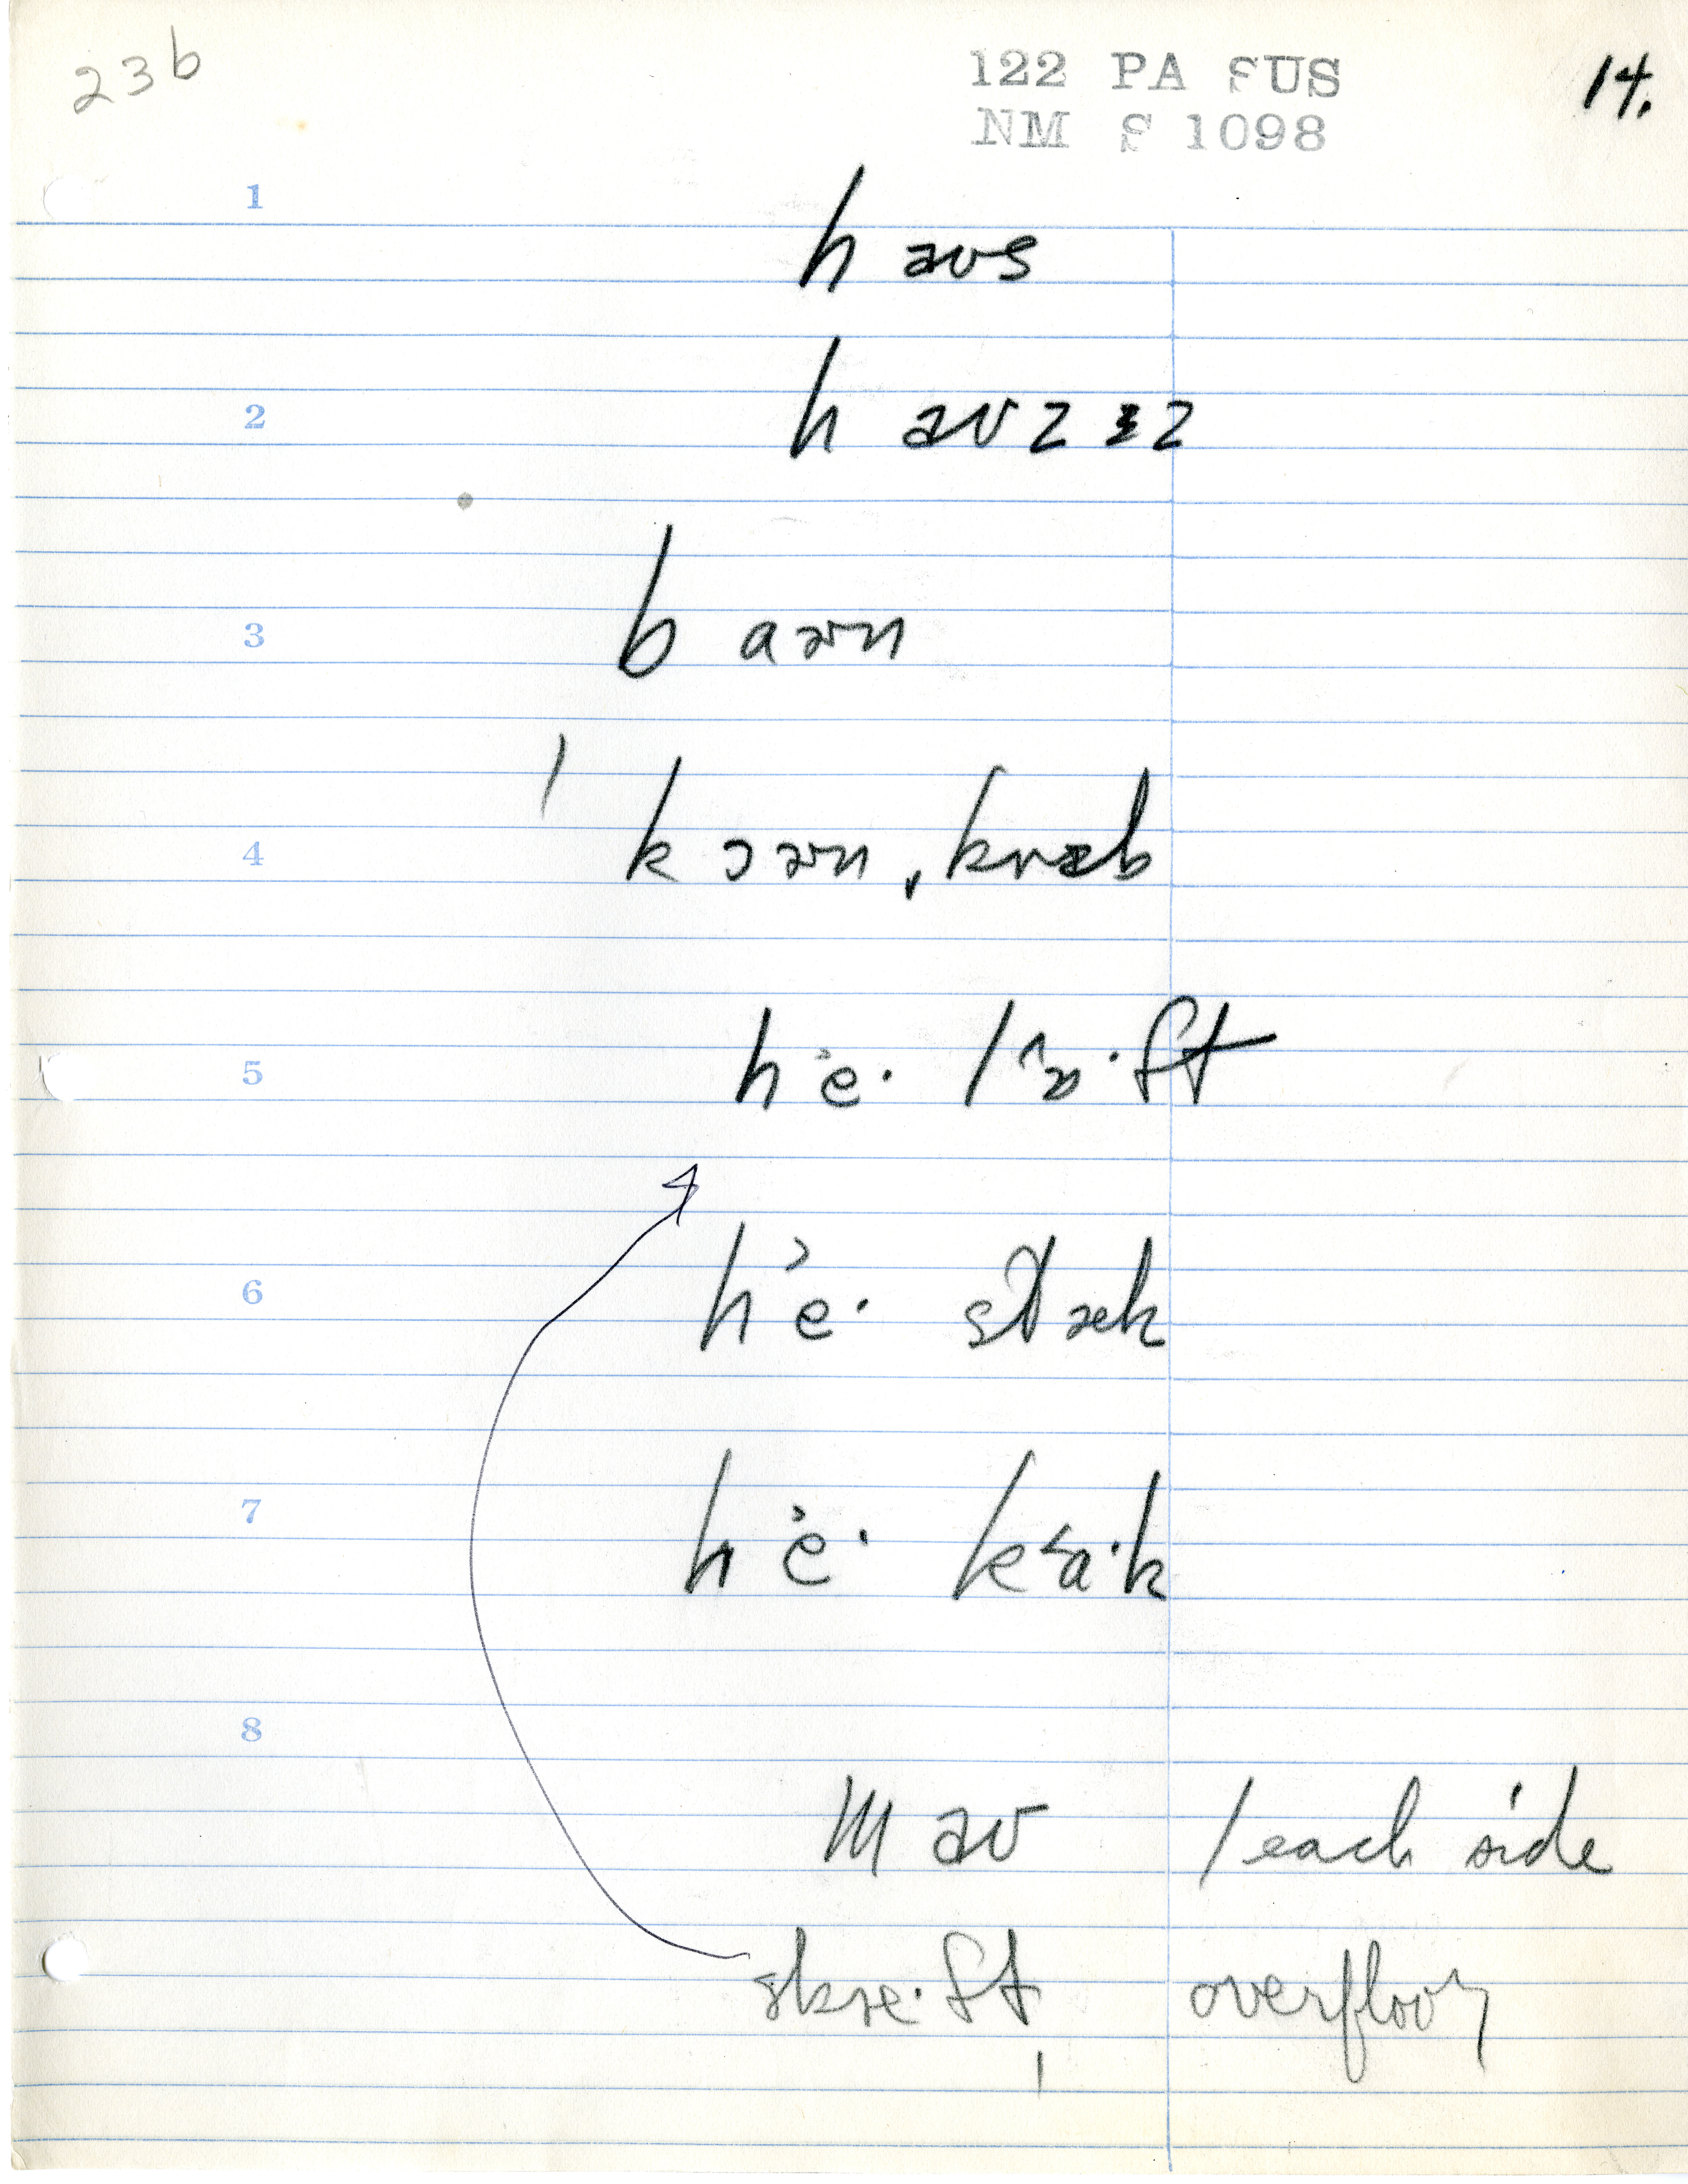 23b
122 PA SUS
NM S 1098
14.
1
h aʊs
2
h aʊz ɨz
3
b aɚn
4
k ɔɚn, kræb
5
he·
6
he· stæk
7
he· ka·k
8
m aʊ / each side
overfloor